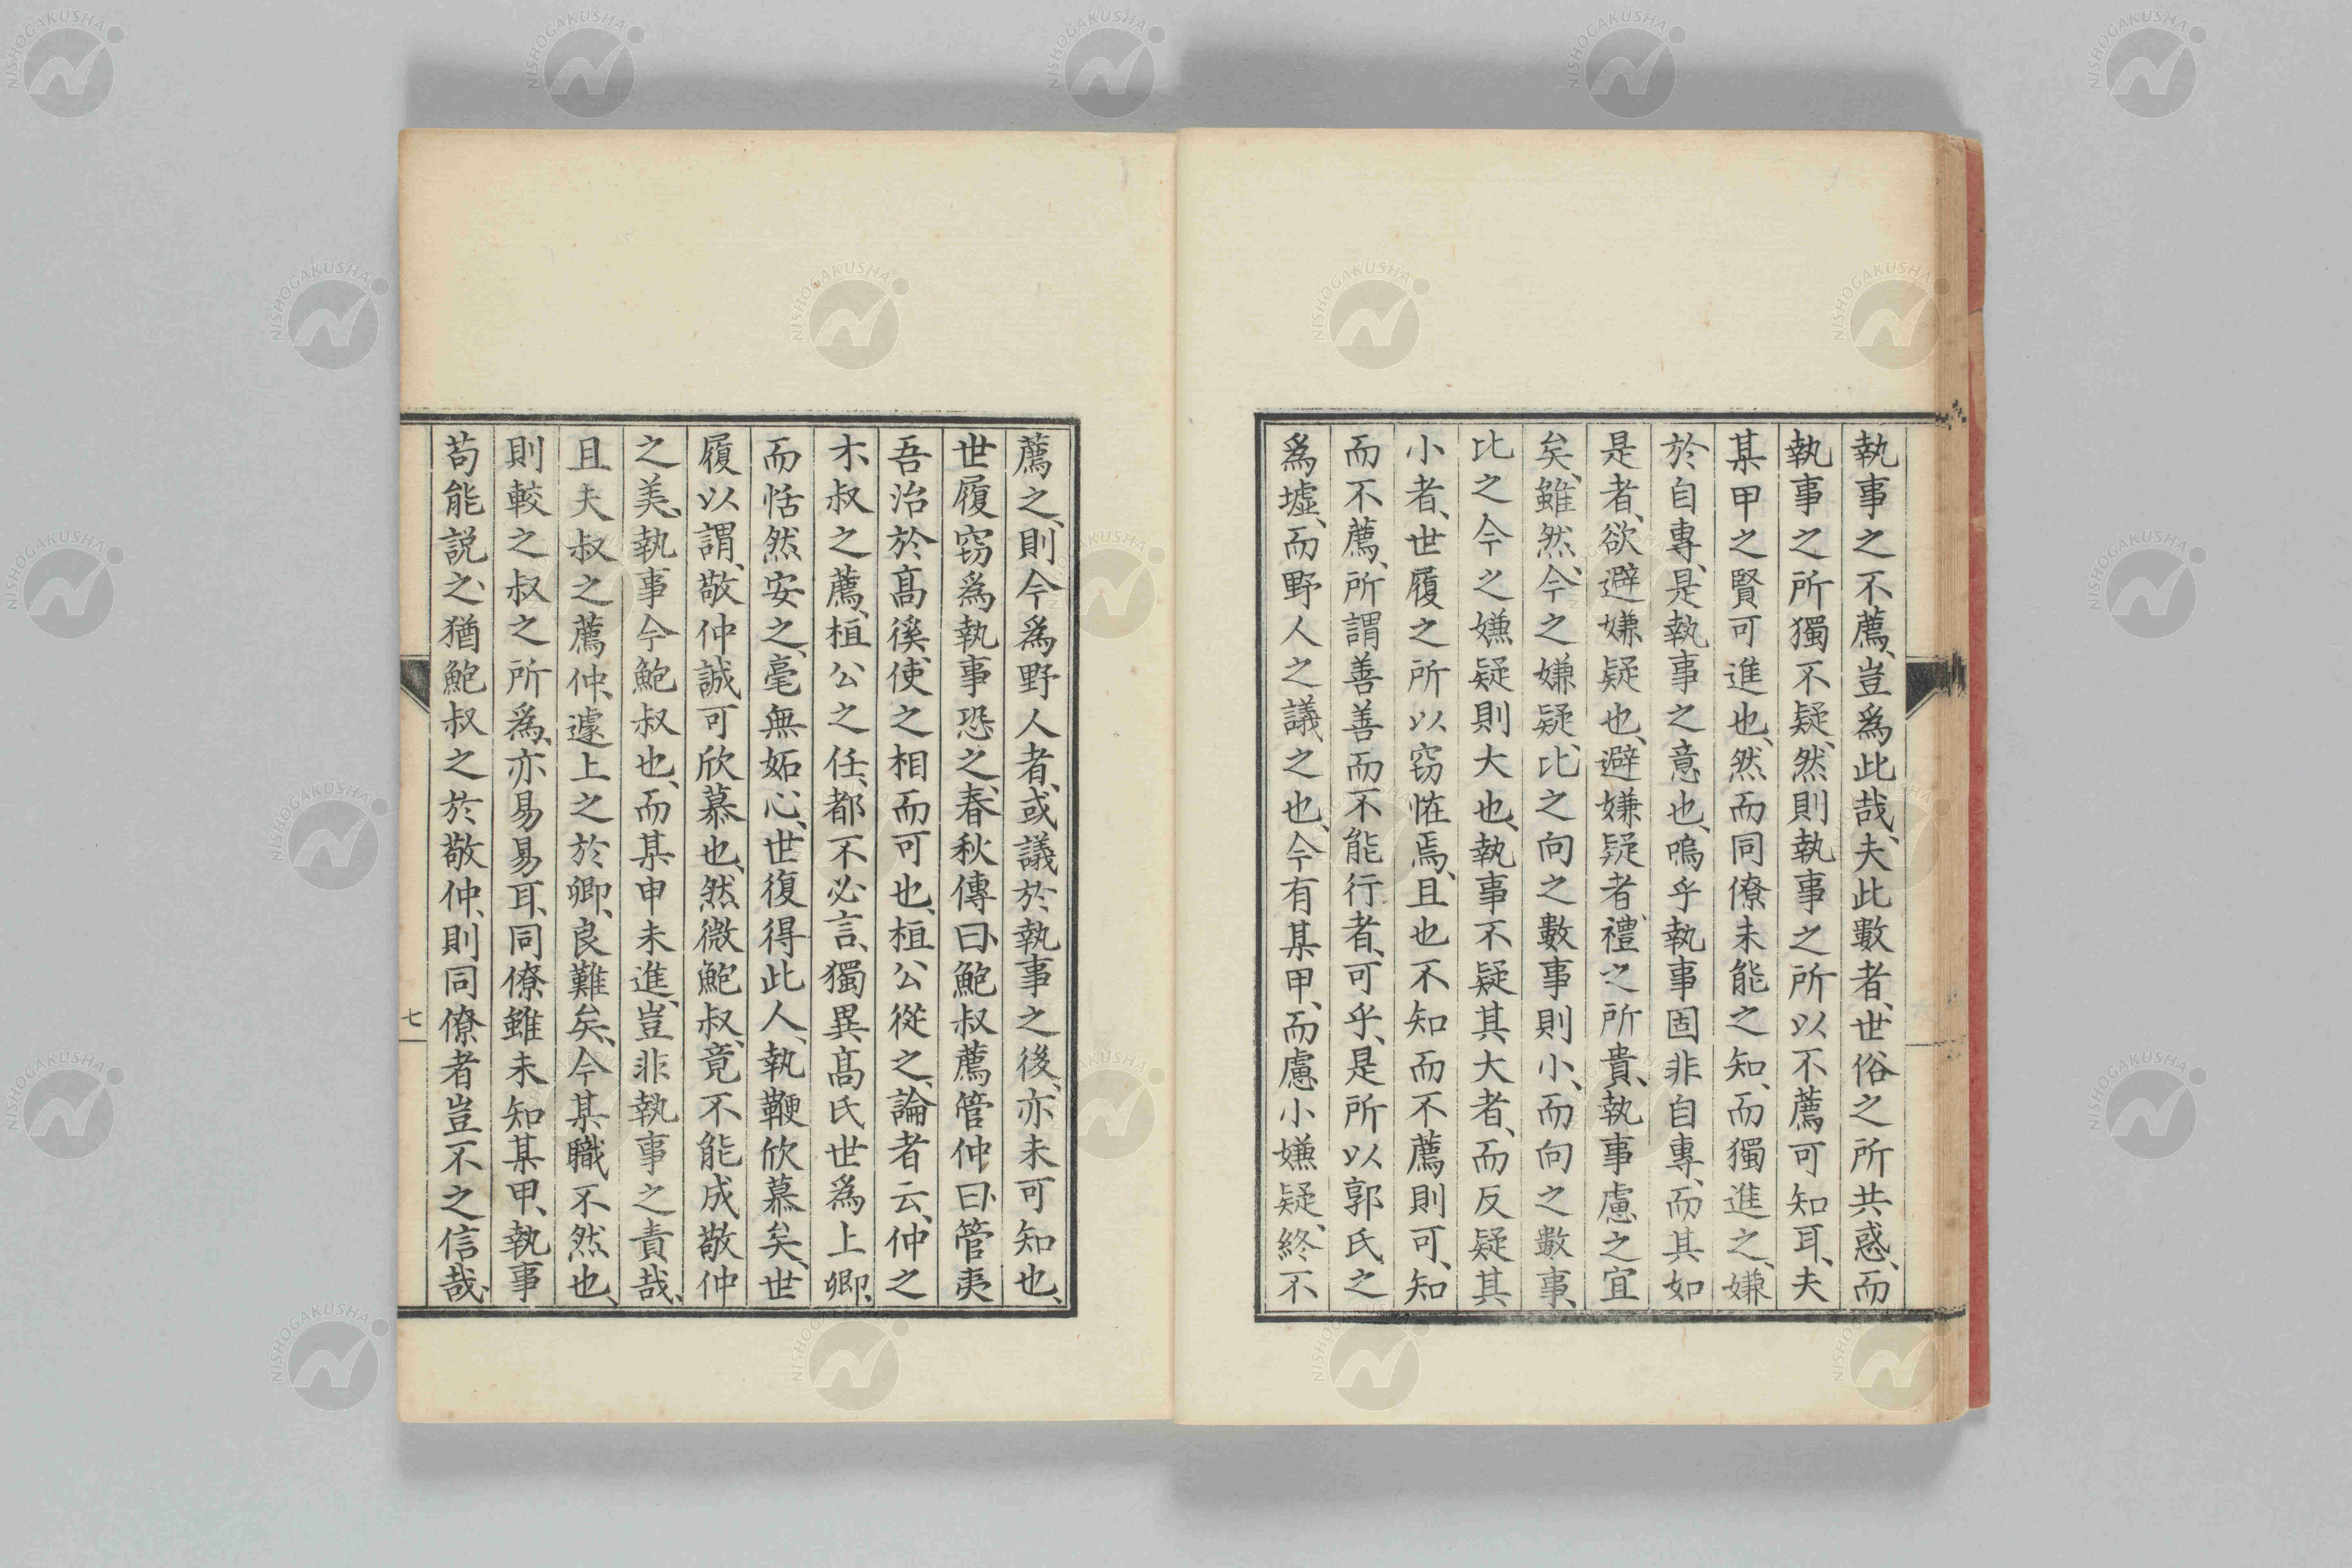 執事之不薦、豈爲此哉、夫此數者、世俗之所共惑、而
執事之所獨不疑、然則執事之所以不薦可知耳、夫
某甲之賢可進也、然而同僚未能之知、而獨進之、嫌
於自專、是執事之意也、嗚乎執事固非自專、而其如
是者、欲避嫌疑也、避嫌疑者禮之所貴、執事慮之宜
矣、雖然、今之嫌疑、比之向之數事則小、而向之數事、
比之今之嫌疑則大也、執事不疑其大者、而反疑其
小者、世履之所以窃恠焉、且也不知而不薦則可、知
而不薦、所謂善善而不能行者、可乎、是所以郭氏之
爲墟、而野人之議之也、今有某甲、而慮小嫌疑、終不
薦之、則今爲野人者、或議於執事之後、亦未可知也、
世履窃爲執事恐之、春秋傳曰、鮑叔薦管仲曰、管夷
吾治於高徯、使之相而可也、桓公從之、論者云、仲之
木叔之薦、桓公之任、都不必言、獨異高氏世爲上卿、
而恬然安之、毫無妬心、世復得此人、執鞭欣慕矣、世
履以謂、敬仲誠可欣慕也、然微鮑叔、竟不能成敬仲
之美、執事今鮑叔也、而某申未進、豈非執事之責哉、
且夫叔之薦仲、遽上之於卿、良難矣、今某職不然也、
則較之叔之所爲、亦易易耳、同僚雖未知某甲、執事
苟能説之、猶鮑叔之於敬仲、則同僚者豈不之信哉、
七
NISHOGAKUSHA